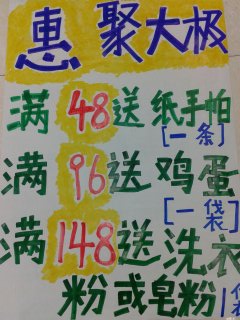 惠聚大极
满48送纸手帕
[一条]
满96送鸡蛋
[一袋]
满148送洗衣
粉或皂粉1袋